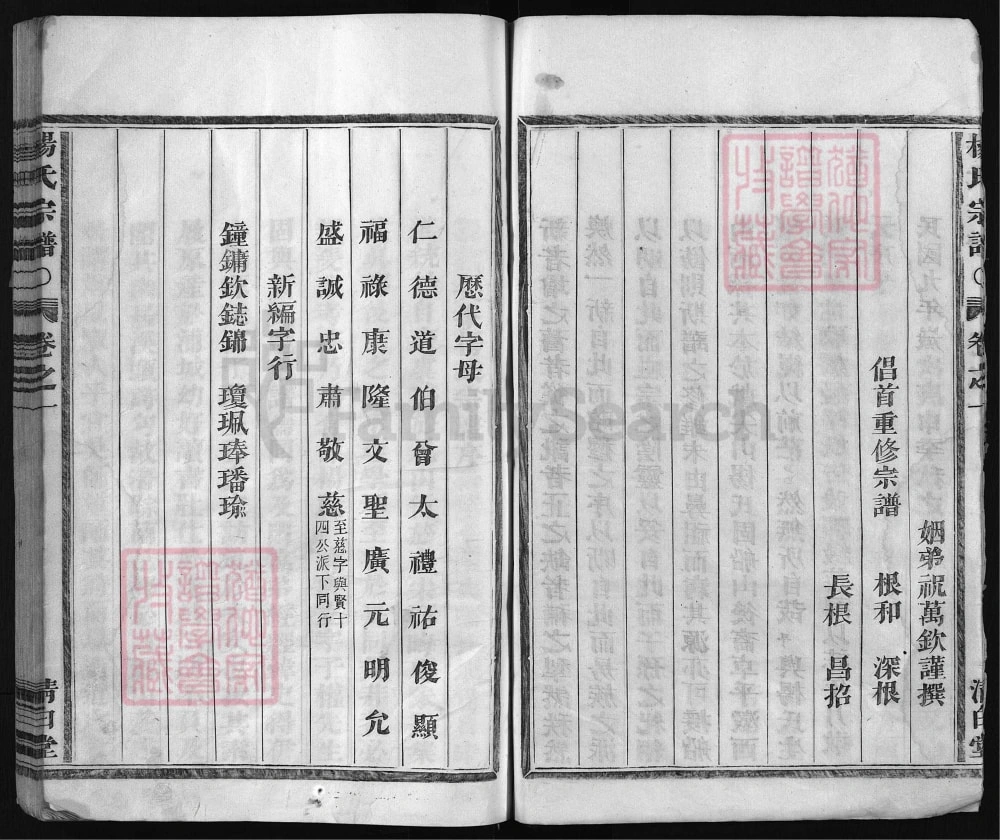 楊氏宗譜
卷之一
清白堂
姻弟祝萬欽謹撰
倡首重修宗譜 根和 深根
長根 昌招
歷代字母
仁德道伯曾太禮祐俊顯
福祿康隆文聖廣元明允
盛誠忠肅敬慈至慈字與賢十四公派下同行
新編字行
鐘鏞欽鋕錦 瓊珮琫璠瑜
楊氏宗譜
卷之一
清白堂
FamilySearch